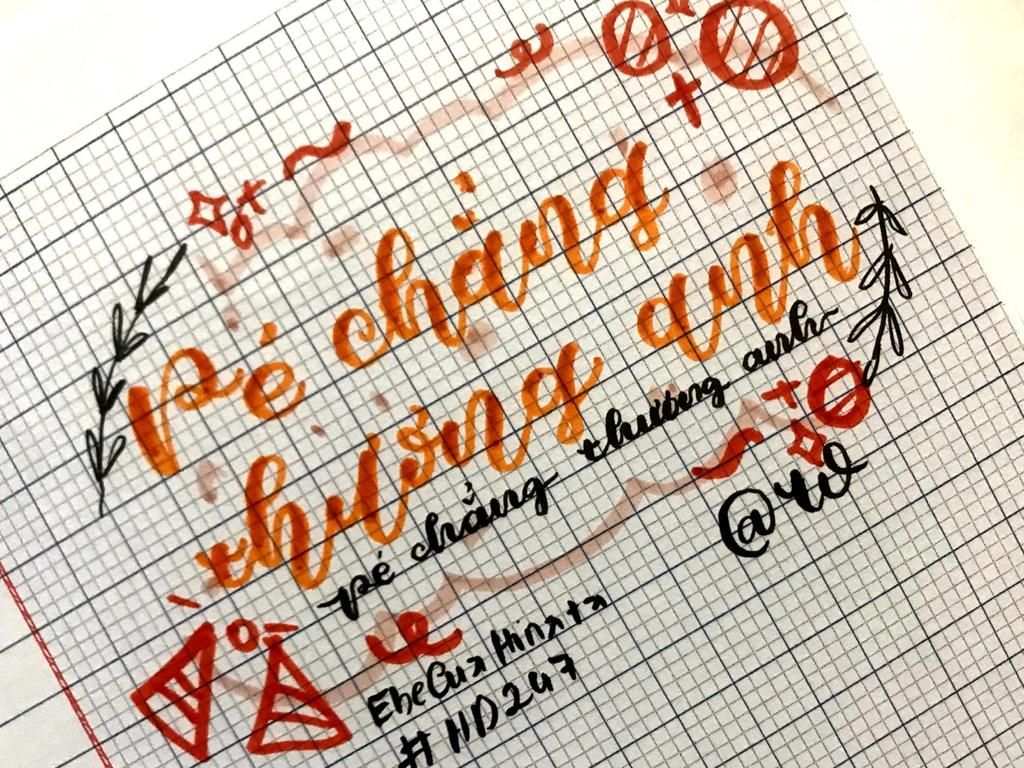 Pé chảng
thương anh
pé chẳng thương anh
@w
EbeCuxHinxtx
#HD247